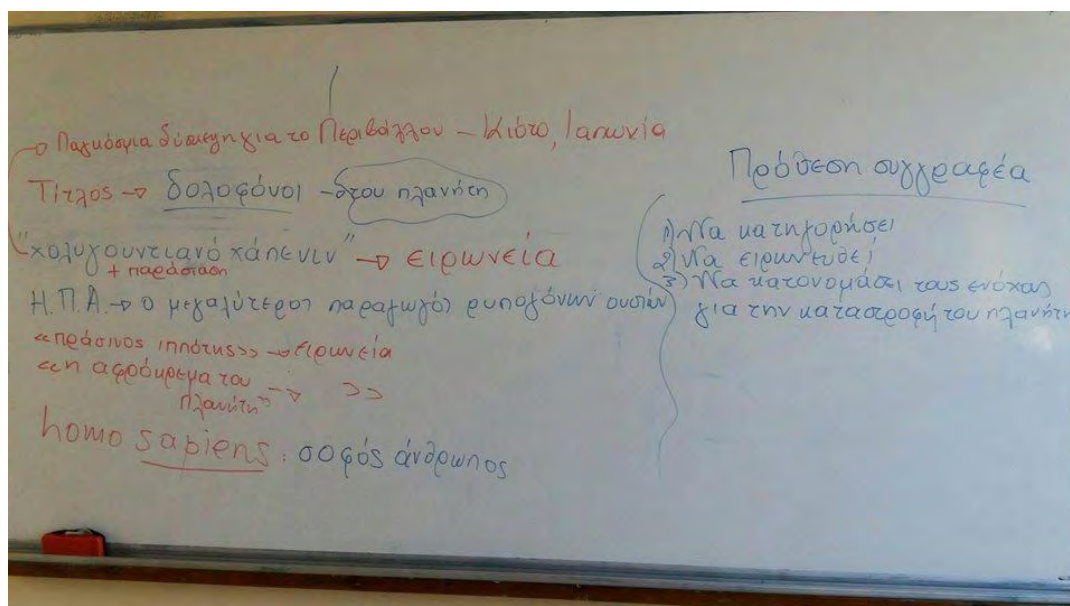 Παγκόσμια δύσκεψη για το Περιβάλλον - Κιότο, Ιαπωνία
Τίτλος → δολοφόνοι → του πλανήτη
"χολυγουντιανό χάπενιν" → ειρωνεία
+ παράσταση
Η.Π.Α. → ο μεγαλύτερος παραγωγός ρυπογόνων ουσιών
«πράσινος ιππότης» → ειρωνεία
«η αφρόκρεμα του
πλανήτη" → >>
homo sapiens: σοφός άνθρωπος
Πρόθεση συγγραφέα
1) Να κατηγορήσει
2) Να ειρωνευθεί
3) Να κατονομάσει τους ενόχους
για την καταστροφή του πλανήτη